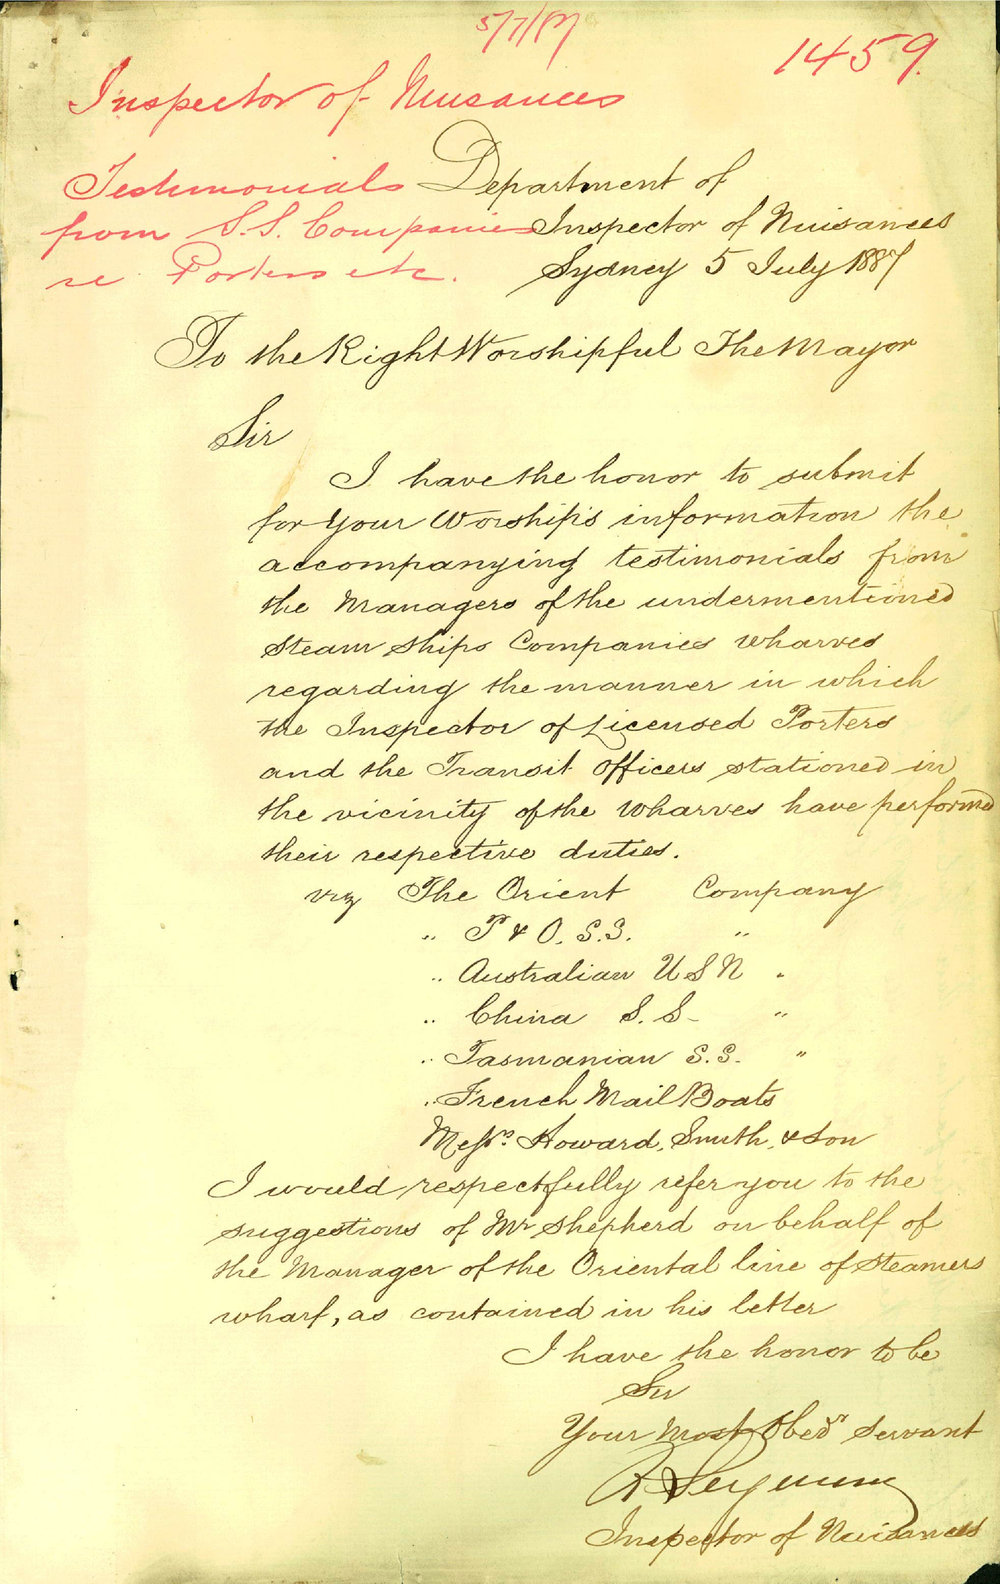 5/7/87
1459.
Inspector of Nuisances
Testimonials
from S.S. Companies
re Porters etc.
Department of
Inspector of Nuisances
Sydney 5 July 1887
To the Right Worshipful The Mayor
Sir
I have the honor to submit
for Your Worship's information the
accompanying testimonials from
the Managers of the undermentioned
Steam Ships Companies Wharves
regarding the manner in which
the Inspector of Licensed Porters
and the Transit Officers stationed in
the vicinity of the Wharves have performed
their respective duties.
viz The Orient Company
" P & O. S.S. "
" Australian U S N "
" China S. S- "
" Tasmanian S.S. "
" French Mail Boats
Messrs. Howard, Smith, & Son
I would respectfully refer you to the
suggestions of Mr Shepherd on behalf of
the Manager of the Oriental line of Steamers
wharf, as contained in his letter
I have the honor to be
Sir
Your Most Obedt Servant
R Seymour
Inspector of Nuisances